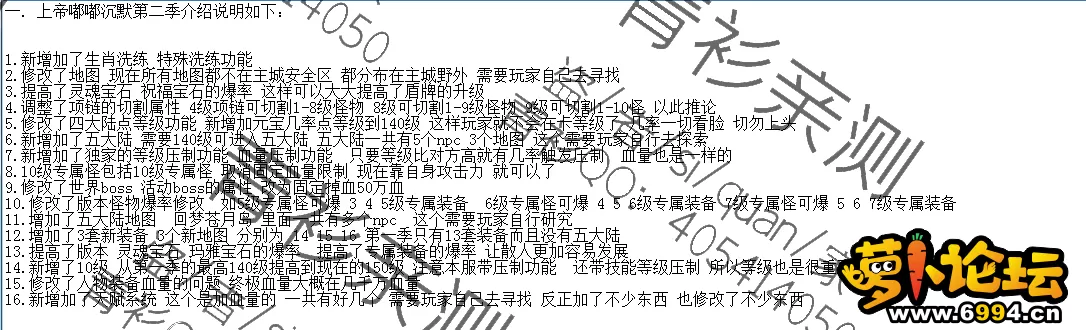 一. 上帝嘟嘟沉默第二季介绍说明如下:
1.新增加了生肖洗练 特殊洗练功能
2.修改了地图 现在所有地图都不在主城安全区 都分布在主城野外 需要玩家自己去寻找
3.提高了灵魂宝石 祝福宝石的爆率 这样可以大大提高了盾牌的升级
4.调整了项链的切割属性 4级项链可切割1-8级怪物 8级可切割1-9级怪物 9级可切割1-10怪 以此推论
5.修改了四大陆点等级功能 新增加元宝几率点等级到140级 这样玩家就不会在卡等级了 几率一切看脸 切勿上头
6.新增加了五大陆 需要140级可进入 五大陆 五大陆一共有5个npc 3个地图 这个需要玩家自行去探索
7.新增加了独家的等级压制功能 血量压制功能 只要等级比对方高就有几率触发压制 血量也是一样的
8.10级专属怪包括10级专属怪 取消固定血量限制 现在靠自身攻击力 就可以了
9.修改了世界boss 活动boss的属性 为固定掉血50万血
10.修改了版本怪物爆率修改 如5级专属怪可爆 3 4 5级专属装备 6级专属怪可爆 4 5 6级专属装备 7级专属怪可爆 5 6 7级专属装备
11.增加了五大陆地图 回梦苍月岛 里面一共有多个npc 这个需要玩家自行研究
12.增加了3套新装备 3个新地图 分别为 14 15 16 第一季只有13套装备而且没有五大陆
13.提高了版本 灵魂宝石 玛雅宝石的爆率 提高了专属装备的爆率 让散人更加容易发展
14.新增了10级 从第一季的最高140级提高到现在的150级 注意本服带压制功能 还带技能等级压制 所以等级也是很重
15.修改了人物装备血量的问题 终极血量大概在几千万血量
16.新增加了 系统 这个是加血量的 一共有好几个 需要玩家自己去寻找 反正加了不少东西 也修改了不少东西
青衫亲测
萝卜论坛
www.6994.cn